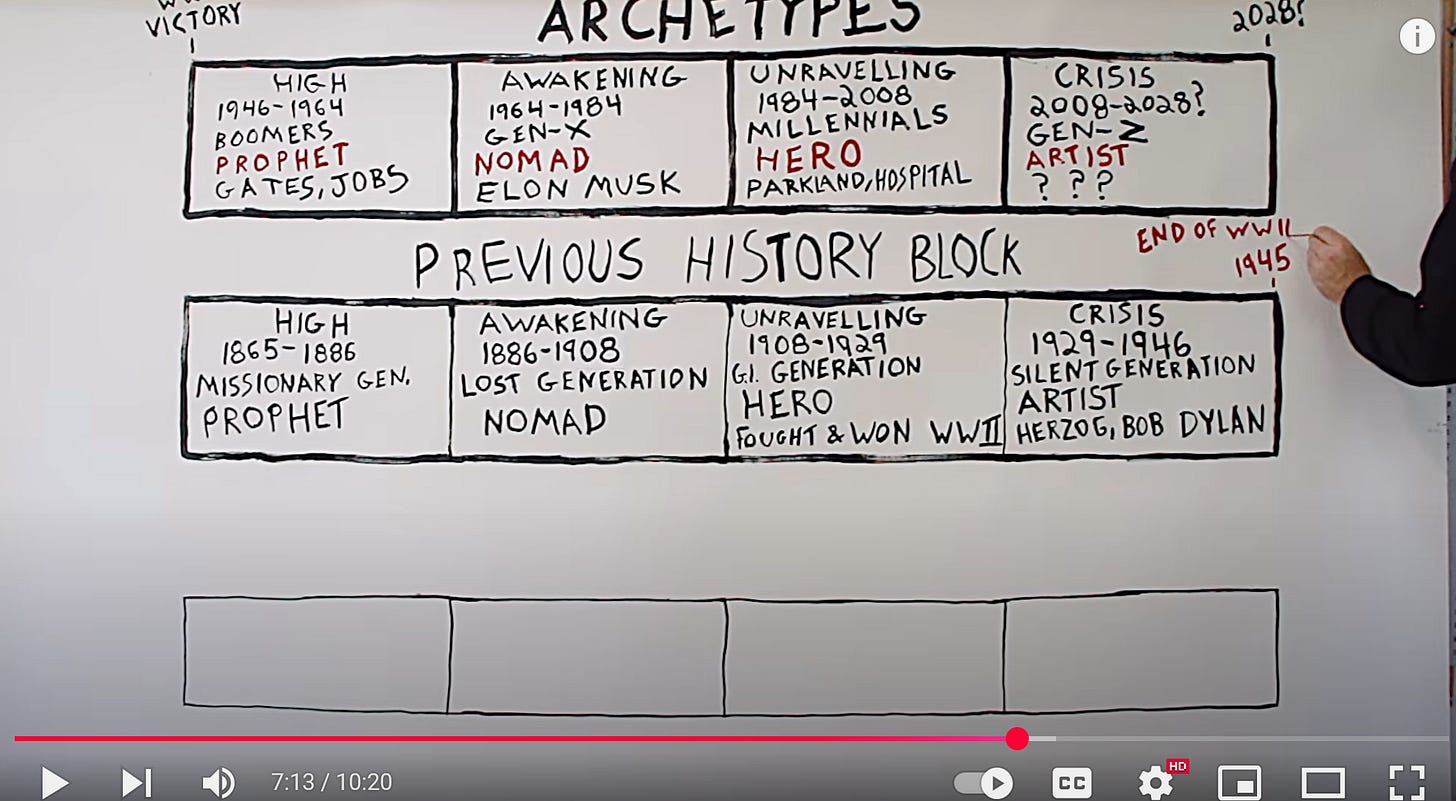 VICTORY
ARCHETYPES
2028?
HIGH
1946-1964
BOOMERS
PROPHET
GATES, JOBS
AWAKENING
1964-1984
GEN-X
NOMAD
ELON MUSK
UNRAVELLING
1984-2008
MILLENNIALS
HERO
PARKLAND, HOSPITAL
CRISIS
2008-2028?
GEN-Z
ARTIST
? ? ?
END OF WWII
1945
PREVIOUS HISTORY BLOCK
HIGH
1865-1886
MISSIONARY GEN.
PROPHET
AWAKENING
1886-1908
LOST GENERATION
NOMAD
UNRAVELLING
1908-1929
G.I. GENERATION
HERO
FOUGHT & WON WWII
CRISIS
1929-1946
SILENT GENERATION
ARTIST
HERZOG, BOB DYLAN
7:13 / 10:20
CC
HD